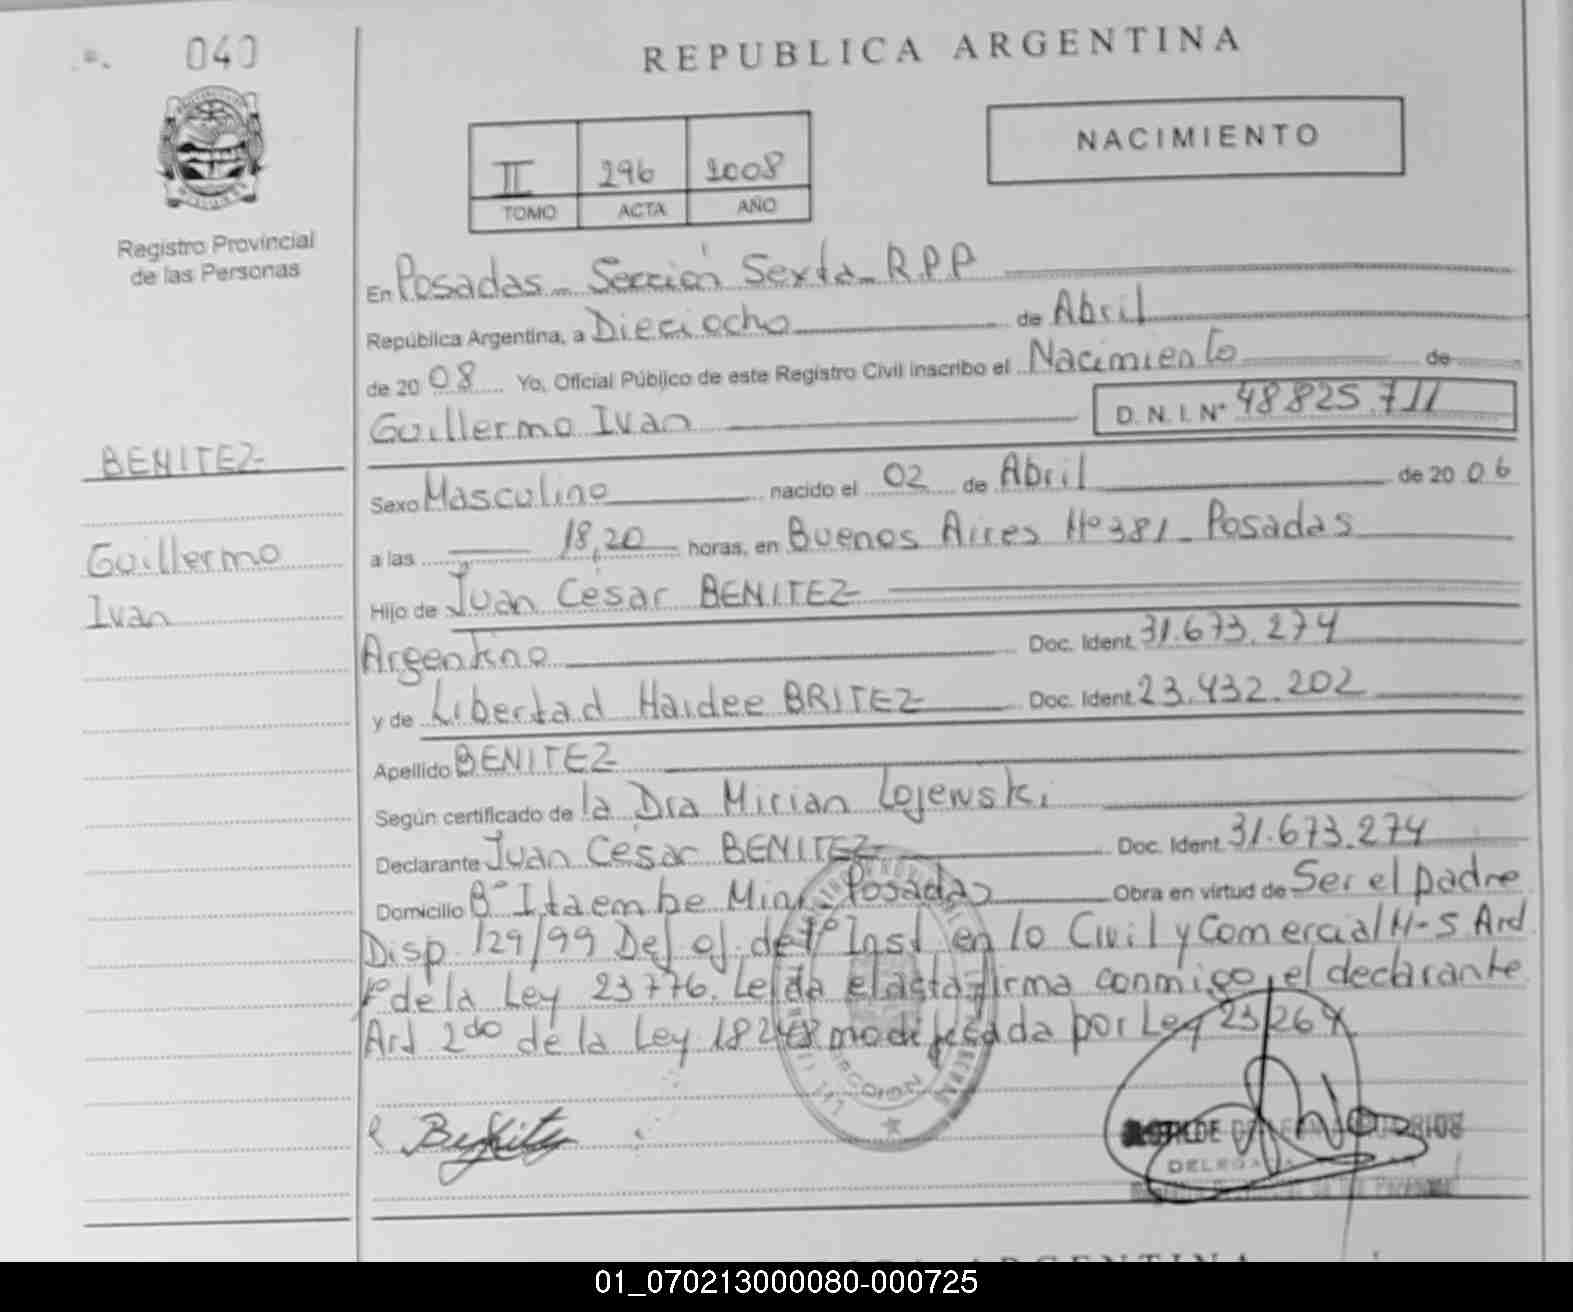 040
REPUBLICA ARGENTINA
NACIMIENTO
II 296 2008
TOMO ACTA AÑO
Registro Provincial
de las Personas
En Posadas - Sección Sexta - R.P.P
República Argentina, a Dieciocho de Abril
de 2008 Yo, Oficial Público de este Registro Civil inscribo el Nacimiento de
Guillermo Ivan D.N.I. N° 48825.711
BENITEZ
Sexo Masculino nacido el 02 de Abril de 2006
Guillermo
Ivan
a las 18,20 horas, en Buenos Aires N° 381 - Posadas
Hijo de Juan César BENITEZ
Argentino Doc. Ident. 31.673.274
y de Libertad Haidee BRITEZ Doc. Ident. 23.432.202
Apellido BENITEZ
Según certificado de la Dra Mirian Lojewski
Declarante Juan César BENITEZ Doc. Ident. 31.673.274
Domicilio B° Itaembe Mini - Posadas Obra en virtud de Ser el padre
Disp. 129/99 Def of. de 1° Inst en lo Civil y Comercial N-5 Art
1° de la Ley 23776. Leída el acta firma conmigo, el declarante
Art 2do de la Ley 18248 modificada por Ley 23264
Benitez
01_070213000080-000725